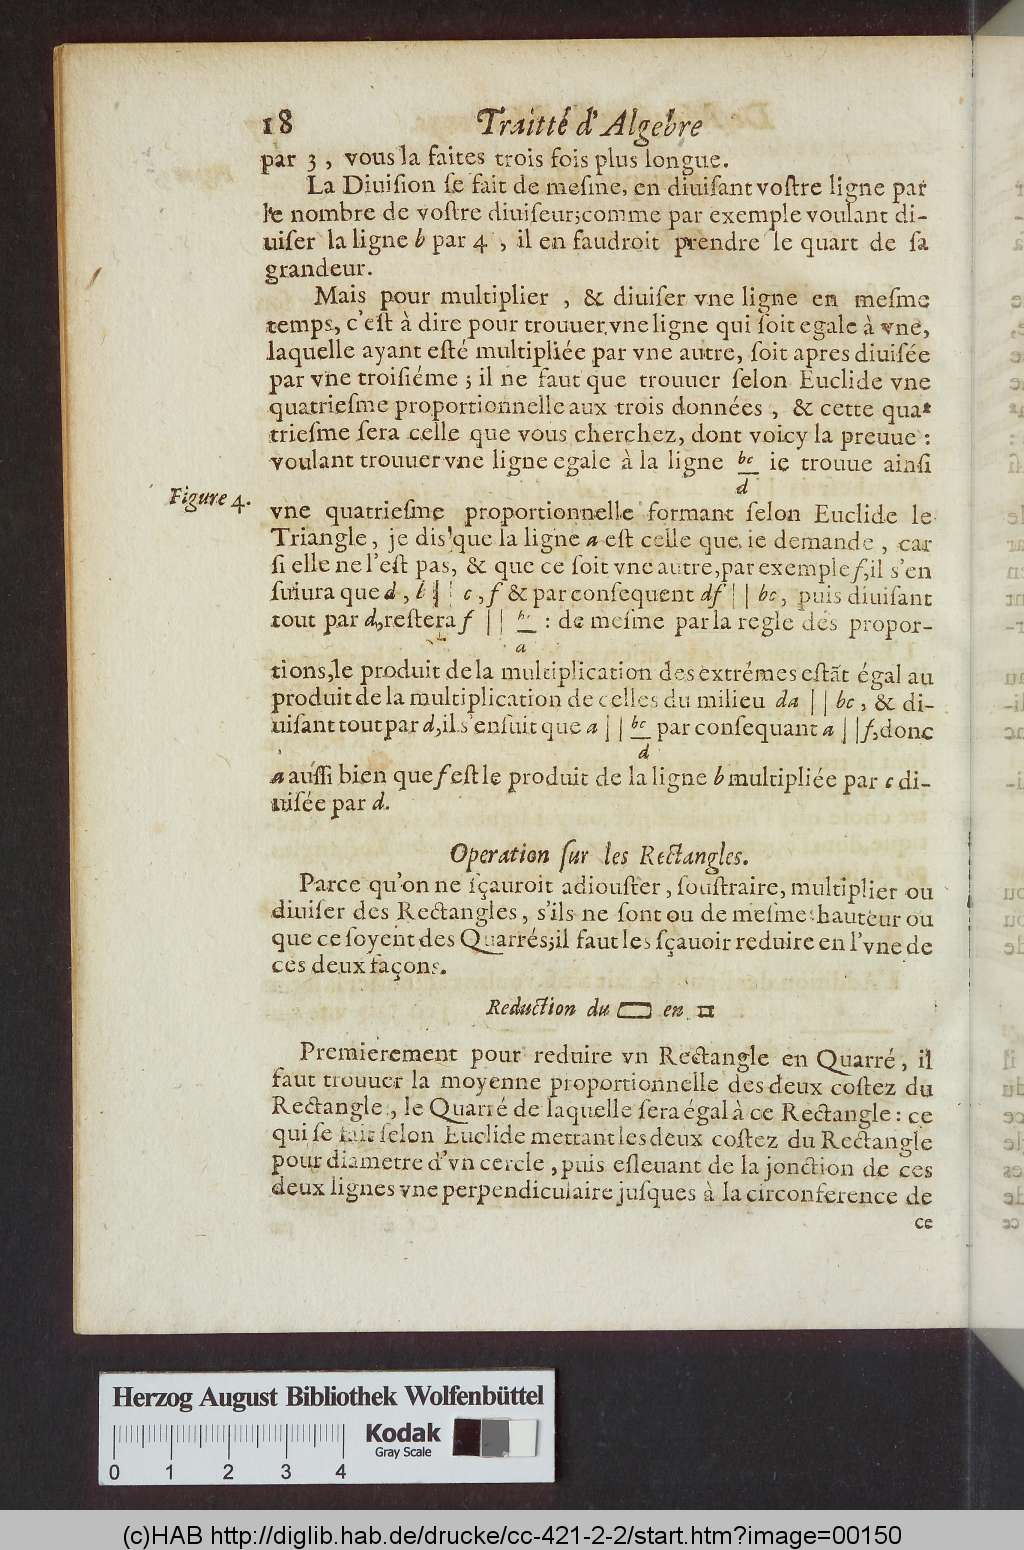 18 Traitté d'Algebre
par 3, vous la faites trois fois plus longue.
La Diuiſion ſe fait de meſme, en diuiſant voſtre ligne par
le nombre de voſtre diuiſeur; comme par exemple voulant di-
uiſer la ligne b par 4, il en faudroit prendre le quart de ſa
grandeur.
Mais pour multiplier, & diuiſer vne ligne en meſme
temps, c'eſt à dire pour trouuer vne ligne qui ſoit egale à vne,
laquelle ayant eſté multipliée par vne autre, ſoit apres diuiſée
par vne troiſiéme; il ne faut que trouuer ſelon Euclide vne
quatrieſme proportionnelle aux trois données, & cette qua-
trieſme ſera celle que vous cherchez, dont voicy la preuue:
voulant trouuer vne ligne egale à la ligne bc/d ie trouue ainſi
Figure 4.
vne quatrieſme proportionnelle formant ſelon Euclide le
Triangle, je dis que la ligne a eſt celle que ie demande, car
ſi elle ne l'eſt pas, & que ce ſoit vne autre, par exemple f, il s'en
ſuiura que d, b || c, f & par conſequent df || bc, puis diuiſant
tout par d, reſtera f || bc/a : de meſme par la regle des propor-
tions, le produit de la multiplication des extrémes eſtãt égal au
produit de la multiplication de celles du milieu da || bc, & di-
uiſant tout par d, il s'enſuit que a || bc/d par conſequant a || f, donc
a auſſi bien que f eſt le produit de la ligne b multipliée par c di-
uiſée par d.
Operation ſur les Rectangles.
Parce qu'on ne ſçauroit adiouſter, ſouſtraire, multiplier ou
diuiſer des Rectangles, s'ils ne ſont ou de meſme hauteur ou
que ce ſoyent des Quarrés; il faut les ſçauoir reduire en l'vne de
ces deux façons.
Reduction du ▭ en □
Premierement pour reduire vn Rectangle en Quarré, il
faut trouuer la moyenne proportionnelle des deux coſtez du
Rectangle, le Quarré de laquelle ſera égal à ce Rectangle: ce
qui ſe fait ſelon Euclide mettant les deux coſtez du Rectangle
pour diametre d'vn cercle, puis eſleuant de la jonction de ces
deux lignes vne perpendiculaire juſques à la circonference de
ce
Herzog August Bibliothek Wolfenbüttel
Kodak
Gray Scale
0 1 2 3 4
(c)HAB http://diglib.hab.de/drucke/cc-421-2-2/start.htm?image=00150